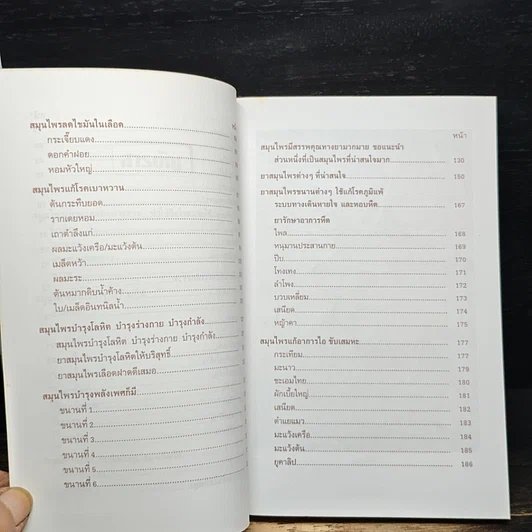 สมุนไพรลดไขมันในเลือด
กระเจี๊ยบแดง
ดอกคำฝอย
หอมหัวใหญ่
สมุนไพรแก้โรคเบาหวาน
ต้นกระทืบยอด
รากเตยหอม
เถาตำลึงแก่
ผลมะแว้งเครือ/มะแว้งต้น
เมล็ดหว้า
ผลมะระ
ต้นหมากดิบน้ำค้าง
ใบ/เมล็ดอินทนิลน้ำ
สมุนไพรบำรุงโลหิต บำรุงร่างกาย บำรุงกำลัง
สมุนไพรบำรุงโลหิต บำรุงร่างกาย บำรุงกำลัง
ยาสมุนไพรโลหิตให้บริสุทธิ์
ยาสมุนไพรเลือดฝาดดีเสมอ
สมุนไพรบำรุงพลังเพศก็มี
ขนานที่ 1
ขนานที่ 2
ขนานที่ 3
ขนานที่ 4
ขนานที่ 5
ขนานที่ 6
หน้า
สมุนไพรมีสรรพคุณทางยามากมาย ขอแนะนำ
ส่วนหนึ่งที่เป็นสมุนไพรที่น่าสนใจมาก 130
ยาสมุนไพรต่างๆ ที่น่าสนใจ 150
ยาสมุนไพรขนานต่างๆ ใช้แก้โรคภูมิแพ้
ระบบทางเดินหายใจ และหอบหืด 167
ยารักษาอาการหืด
ไพล 168
หนุมานประสานกาย 169
ปีบ 170
โทงเทง 171
ลำโพง 172
บวบเหลี่ยม 173
เสนียด 174
หญ้าคา 175
สมุนไพรแก้อาการไอ ขับเสมหะ 177
กระเทียม 178
มะนาว 179
ชะเอมไทย 180
ผักเบี้ยใหญ่ 181
เสนียด 182
ตำแยแมว 183
มะแว้งเครือ 184
มะแว้งต้น 185
ยูคาลิป 186